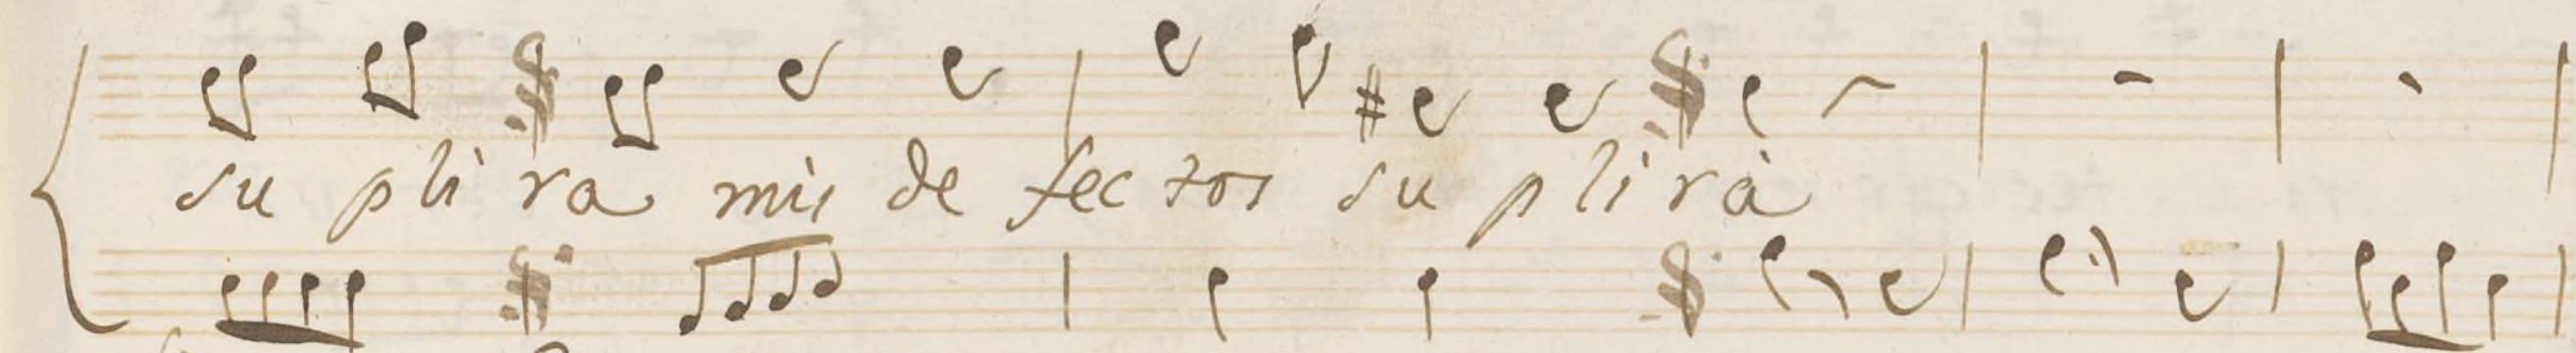 su pli ra mis de fec tos su pli rà